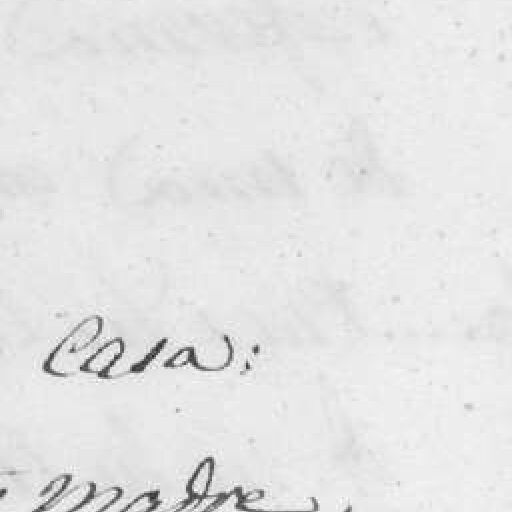 Casa:
Madre